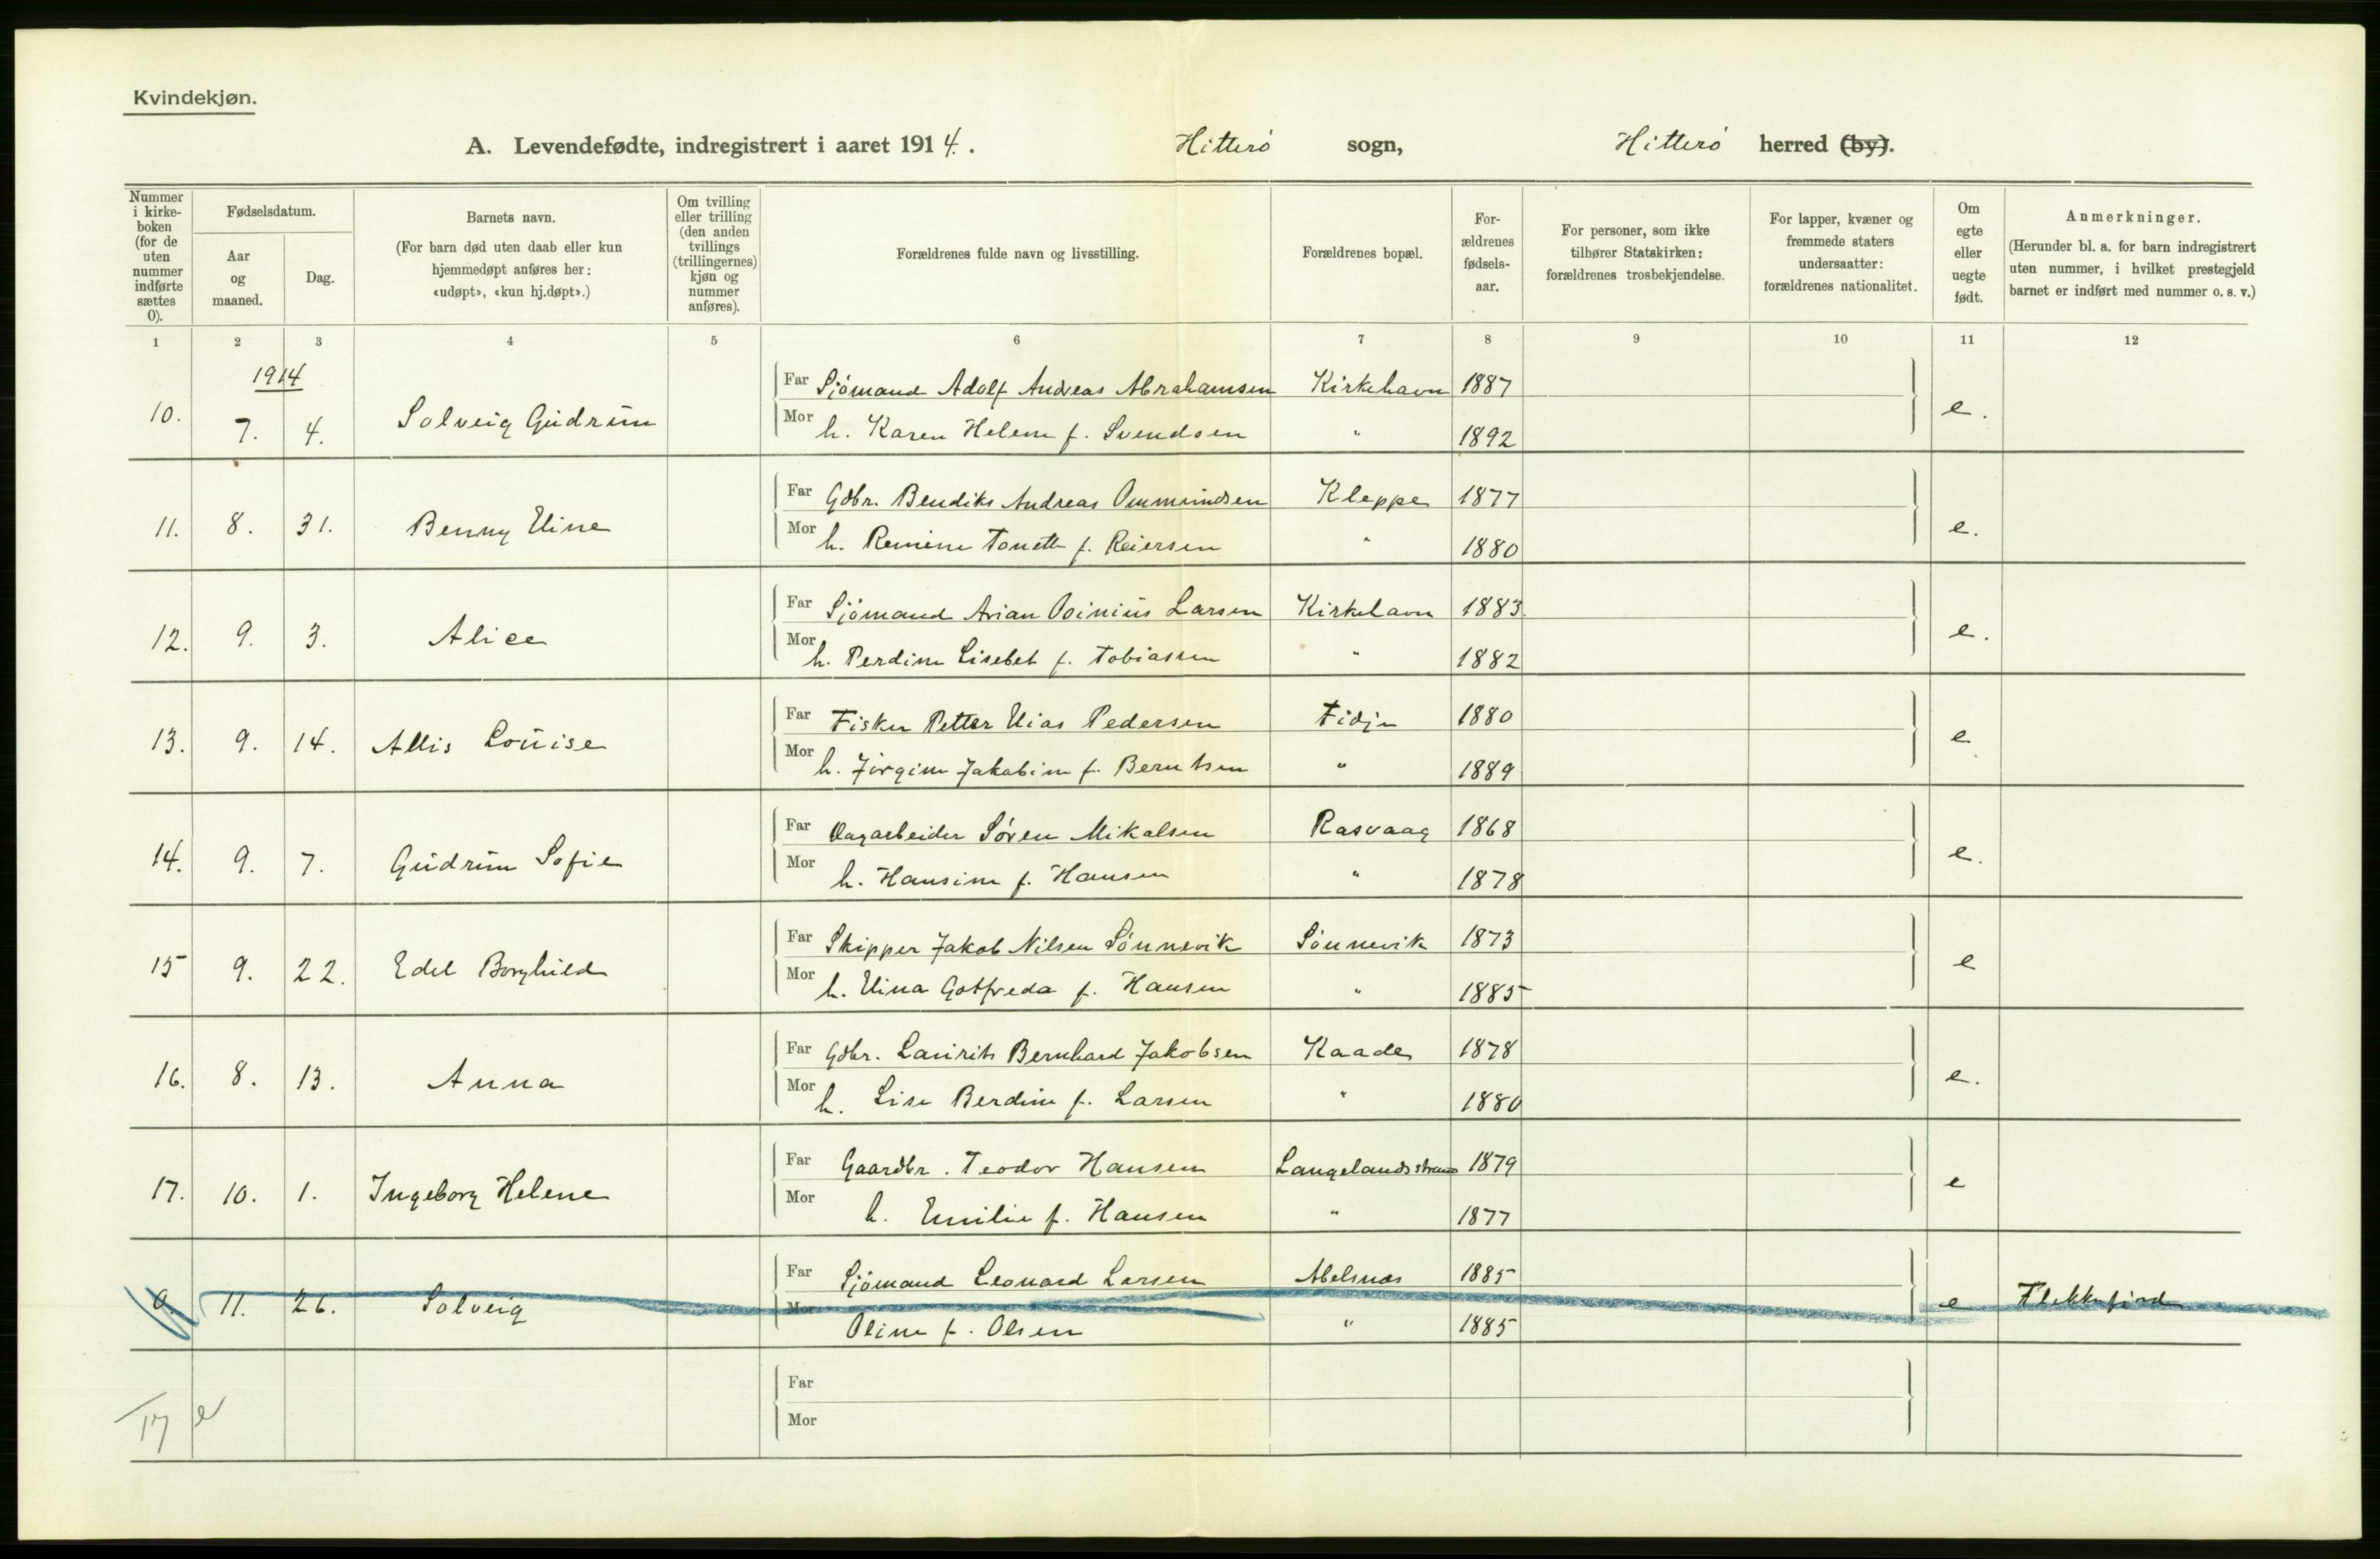 Kvindekjøn.
A. Levendefødte, indregistrert i aaret 1914. Hitterö sogn, Hitterö herred (by).
Nummer i kirke-boken (for de uten nummer indførte sættes 0).
Fødselsdatum.
Aar og maaned.
Dag.
Barnets navn.
(For barn død uten daab eller kun hjemmedøpt anføres her: «udøpt», «kun hj.døpt».)
Om tvilling eller trilling (den anden tvillings (trillingernes) kjøn og nummer anføres).
Forældrenes fulde navn og livsstilling.
Forældrenes bopæl.
For-ældrenes fødsels-aar.
For personer, som ikke tilhører Statskirken: forældrenes trosbekjendelse.
For lapper, kvæner og fremmede staters undersaatter: forældrenes nationalitet.
Om egte eller uegte født.
Anmerkninger.
(Herunder bl. a. for barn indregistrert uten nummer, i hvilket prestegjeld barnet er indført med nummer o. s. v.)
1 2 3 4 5 6 7 8 9 10 11 12
1914
10. 7. 4. Solveig Gudrun
Far Sjömand Adolf Andreas Abrahamsen Kirkehavn 1887 e.
Mor h. Karen Helene f. Svendsen " 1892
11. 8. 31. Benny Eline
Far Gdbr. Bendiks Andreas Ommundsen Kleppe 1877 e.
Mor h. Remine Tonette f. Reiersen " 1880
12. 9. 3. Alice
Far Sjömand Arian Larsen Kirkehavn 1883. e.
Mor h. Perdine Lisebet f. Tobiassen " 1882
13. 9. 14. Allis Louise
Far Fisker Petter Elias Pedersen Fidje 1880 e
Mor h. Jörgine Jakobine f. Berntsen " 1889
14. 9. 7. Gudrun Sofie
Far Dagarbeider Sören Mikalsen Rasvaag 1868 e.
Mor h. Hansine f. Hansen " 1878
15 9. 22. Edel Borghild
Far Skipper Jakob Nilsen Sönnevik Sönnevik 1873 e
Mor h. Elina Gotfreda f. Hansen " 1885
16. 8. 13. Anna
Far Gdbr. Laurits Bernhard Jakobsen Kaade 1878 e.
Mor h. Lise Berdine f. Larsen " 1880
17. 10. 1. Ingeborg Helene
Far Gaardbr. Teodor Hansen Langelandsstrand 1879 e
Mor h. Emilie f. Hansen " 1877
0. 11. 26. Solveig
Far Sjömand Leonard Larsen Abelsnæs 1885 e Flekkefjord
Mor Oline f. Olsen " 1885
17 e
Far
Mor